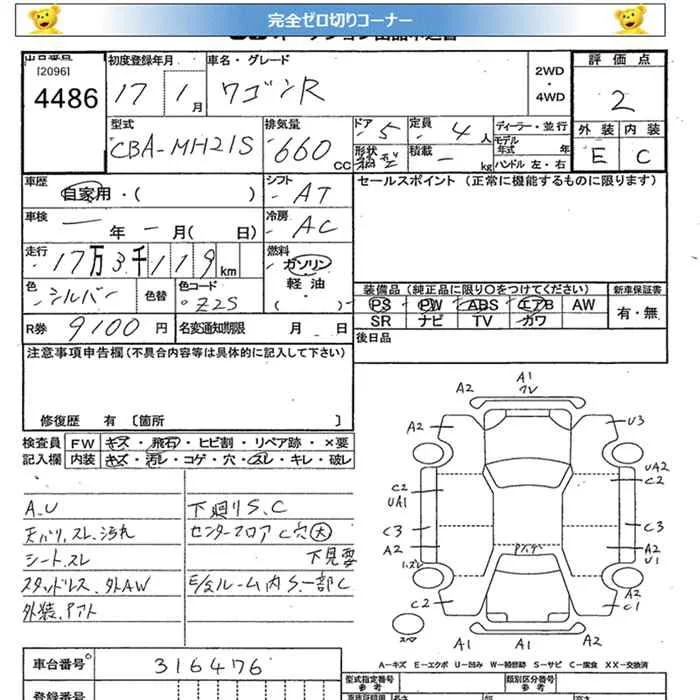 完全ゼロ切りコーナー
[2096]
4486
初度登録年月
17 1月
車名・グレード
ワゴンR
2WD
・
4WD
評価点
2
外装 内装
E C
型式
CBA-MH21S
排気量
660cc
ドア 5
形状
定員 4人
積載 - kg
ディーラー・並行
モデル年式 年
ハンドル 左・右
車歴
自家用・( )
シフト
AT
セールスポイント (正常に機能するものに限ります)
車検
一年 一月( 日)
冷房
AC
走行
17万3千119km
燃料
ガソリン
軽油
( )
色
シルバー
色替
色コード
Z2S
装備品 (純正品に限り○をつけてください)
PS PW ABS エアB AW
SR ナビ TV カワ
新車保証書
有・無
R券 9100円
名変通知期限 月 日
後日品
注意事項申告欄(不具合内容等は具体的に記入して下さい)
修復歴 有 〔箇所 〕
検査員 FW キズ・飛石・ヒビ割・リペア跡・×要
記入欄 内装 キズ・汚レ・コゲ・穴・スレ・キレ・破レ
A.U
天バリ、スレ、汚れ
シート、スレ
スタッドレス、外AW
外装、アフト
下廻りS.C
センターフロアC穴大
下見要
E/Gルーム内S.一部C
A1
A2
A2
U3
UA2
C2
C2
UA1
C3
C3
A2
A2
U1
C2
A2
C1
A1
A1
A2
スペア
A-キズ E-エクボ U-凹み W-補修跡 S-サビ C-腐食 XX-交換済
車台番号
316476
型式指定番号
参考
類別区分番号
参考
登録番号
長さ
幅
高さ